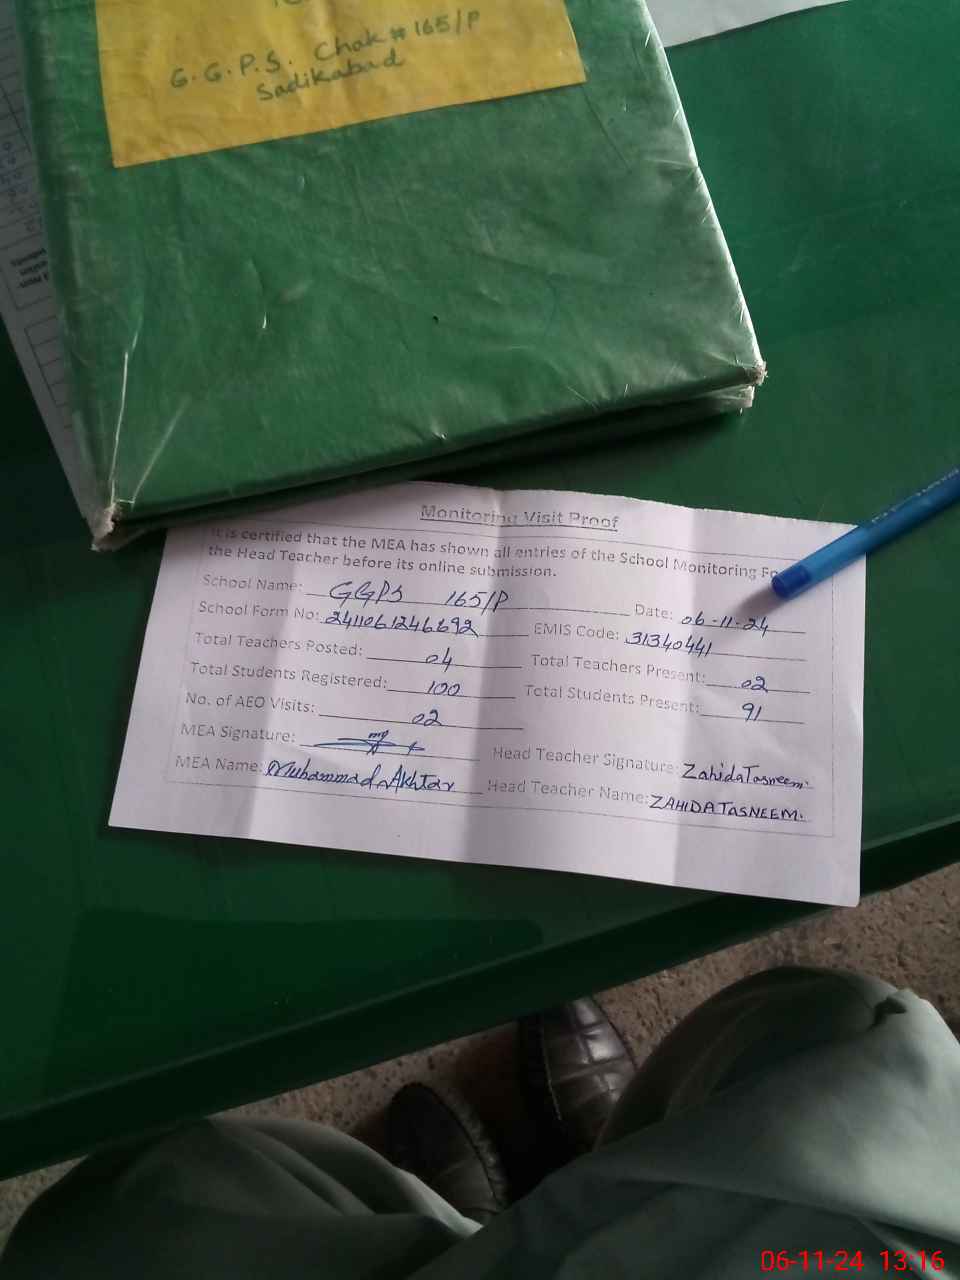 G.G.P.S. Chak # 165/P
Sadikabad
Monitoring Visit Proof
It is certified that the MEA has shown all entries of the School Monitoring
the Head Teacher before its online submission.
School Name: GGPS 165/P Date: 06-11-24
School Form No: 2411061246692 EMIS Code: 31340441
Total Teachers Posted: 04 Total Teachers Present: 02
Total Students Registered: 100 Total Students Present: 91
No. of AEO Visits: 02
MEA Signature: Head Teacher Signature: Zahida Tasneem.
MEA Name: Muhammad Akhtar Head Teacher Name: ZAHIDA TASNEEM.
06-11-24 13:16